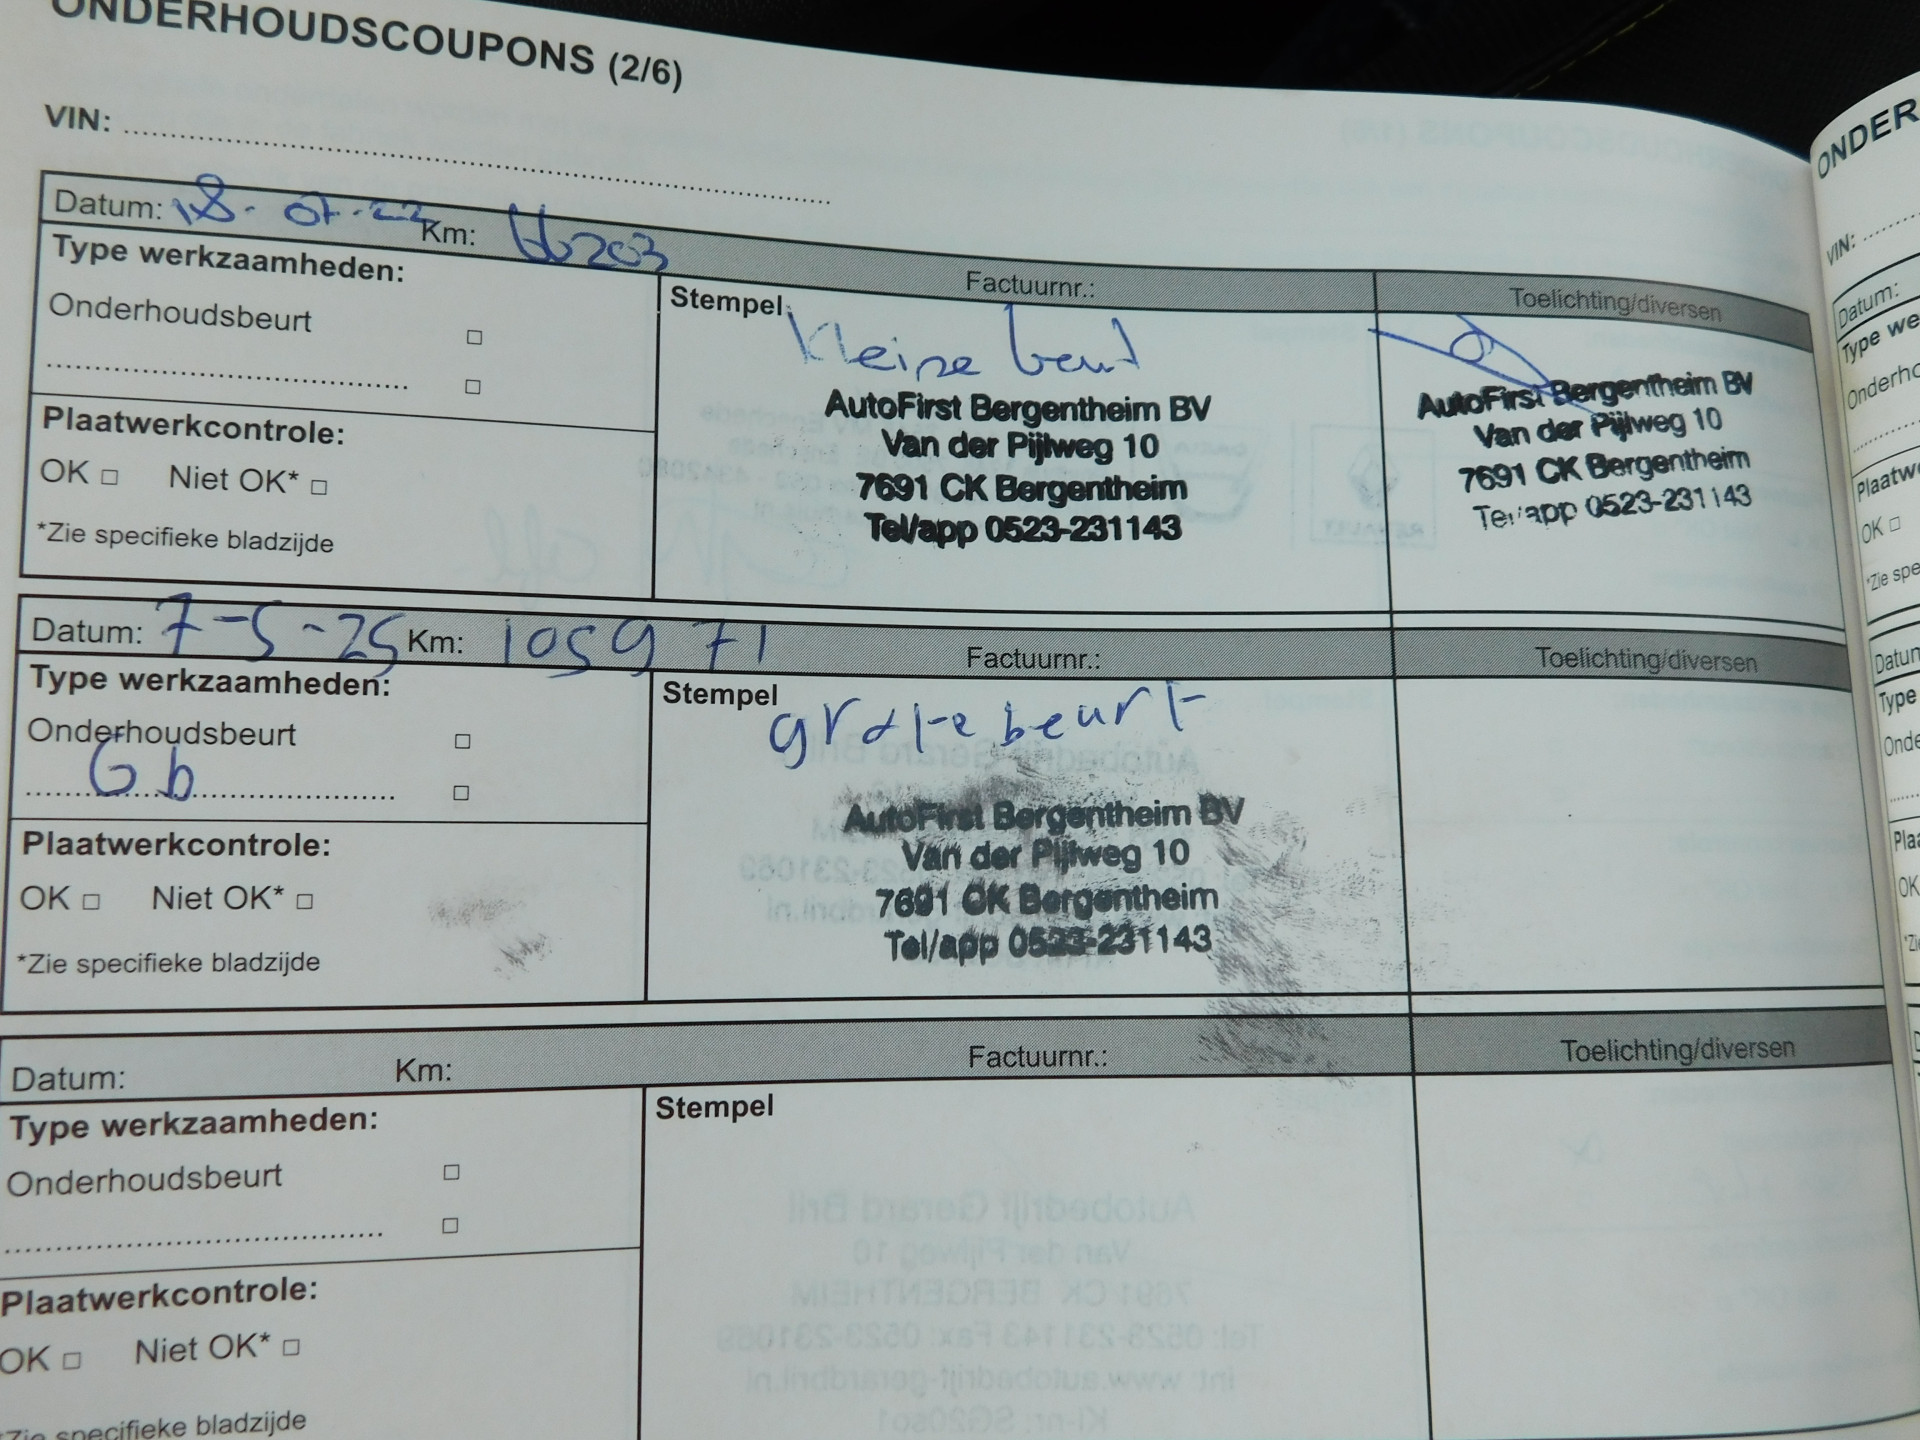 ONDERHOUDSCOUPONS (2/6)
VIN:
Datum: 18-07-22 Km: 66203 Factuurnr.: Toelichting/diversen
Type werkzaamheden:
Onderhoudsbeurt □
□
Plaatwerkcontrole:
OK □ Niet OK* □
*Zie specifieke bladzijde
Stempel
kleine beurt
AutoFirst Bergentheim BV
Van der Pijlweg 10
7691 CK Bergentheim
Tel/app 0523-231143
AutoFirst Bergentheim BV
Van der Pijlweg 10
7691 CK Bergentheim
Tel/app 0523-231143
Datum: 7-5-25 Km: 105971 Factuurnr.: Toelichting/diversen
Type werkzaamheden:
Onderhoudsbeurt □
Gb □
Plaatwerkcontrole:
OK □ Niet OK* □
*Zie specifieke bladzijde
Stempel
grote beurt
AutoFirst Bergentheim BV
Van der Pijlweg 10
7691 CK Bergentheim
Tel/app 0523-231143
Datum: Km: Factuurnr.: Toelichting/diversen
Type werkzaamheden:
Onderhoudsbeurt □
□
Plaatwerkcontrole:
OK □ Niet OK* □
*Zie specifieke bladzijde
Stempel
ONDER
VIN:
Datum:
Type we
Onderho
Plaatw
OK □
*Zie spe
Datun
Type
Onde
Plaa
OK